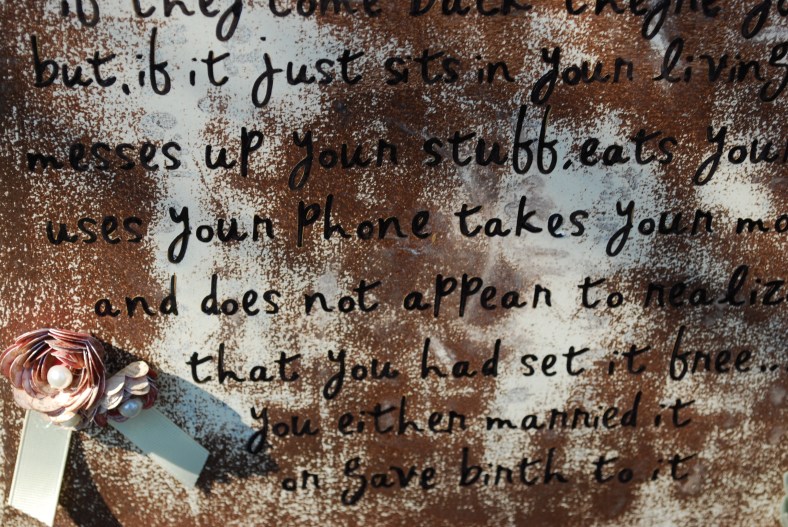 if they come back they're yo
but, if it just sits in your living
messes up your stuff, eats your
uses your phone takes your mo
and does not appear to realiz
that you had set it free...
you either married it
or gave birth to it